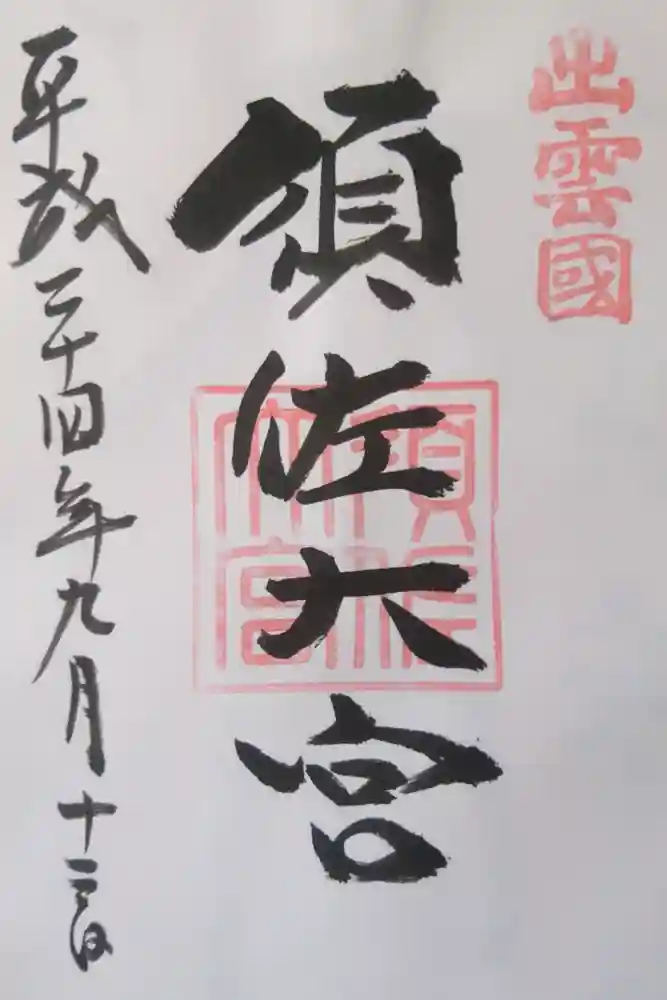 出雲國
須佐大宮
須佐
大宮
平成二十四年九月十三日